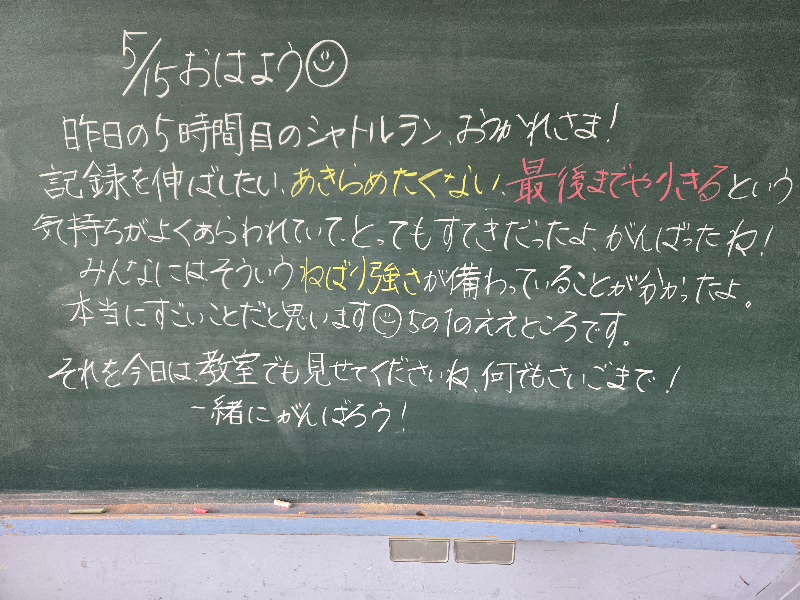 5/15おはよう☺
昨日の5時間目のシャトルラン、おつかれさま!
記録を伸ばしたい、あきらめたくない、最後までやりきるという
気持ちがよくあらわれていて、とってもすてきだったよ、がんばったね!
みんなにはそういうねばり強さが備わっていることが分かったよ。
本当にすごいことだと思います☺5の1のええところです。
それを今日は、教室でも見せてくださいね、何でもさいごまで!
一緒にがんばろう!